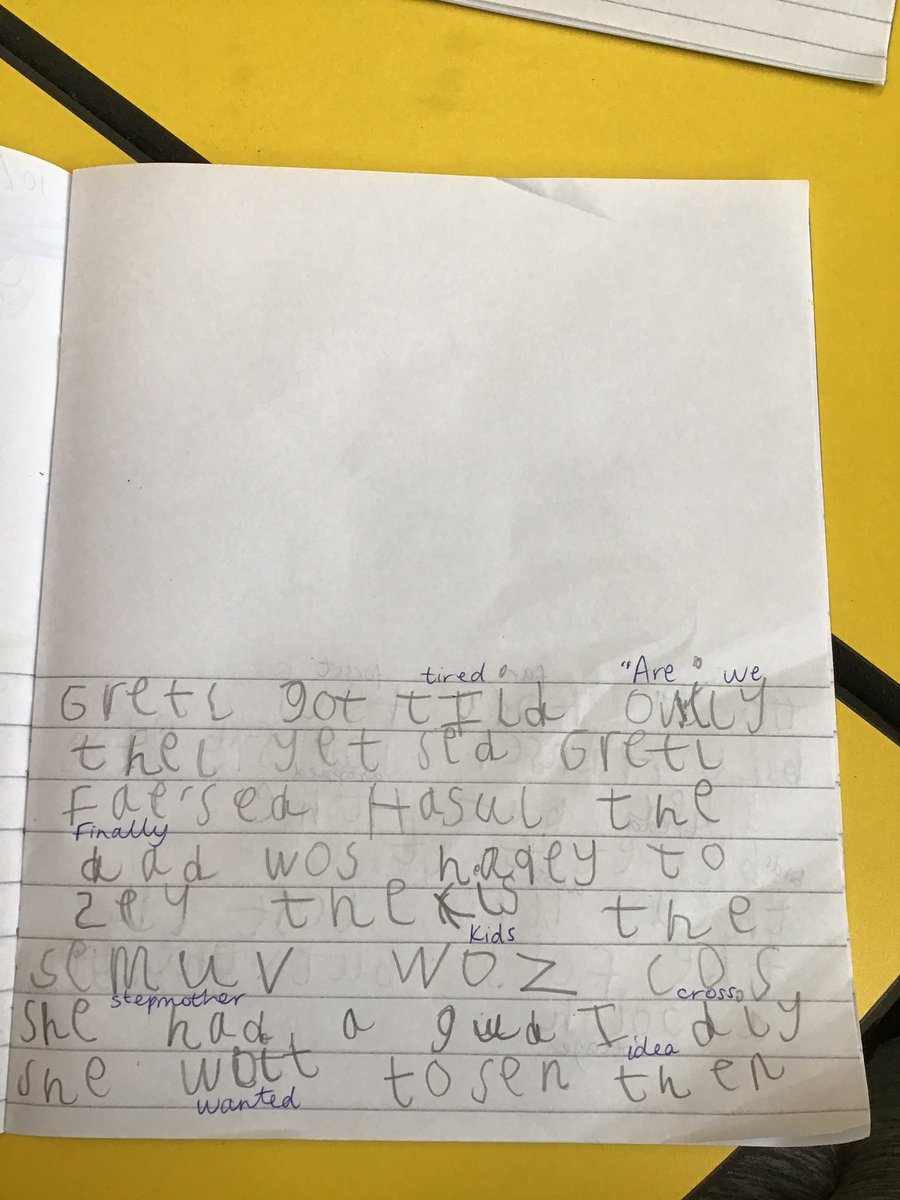 tired. "Are" we
Gretl got tIld owlly
thel yet sed Gretl
Fae'sed Hasul the
Finally
dad wos hapey to
zey the kis the
kids
semuv woz cos
stepmother cross.
She had a gud I dly
idea
she wott to sen then
wanted